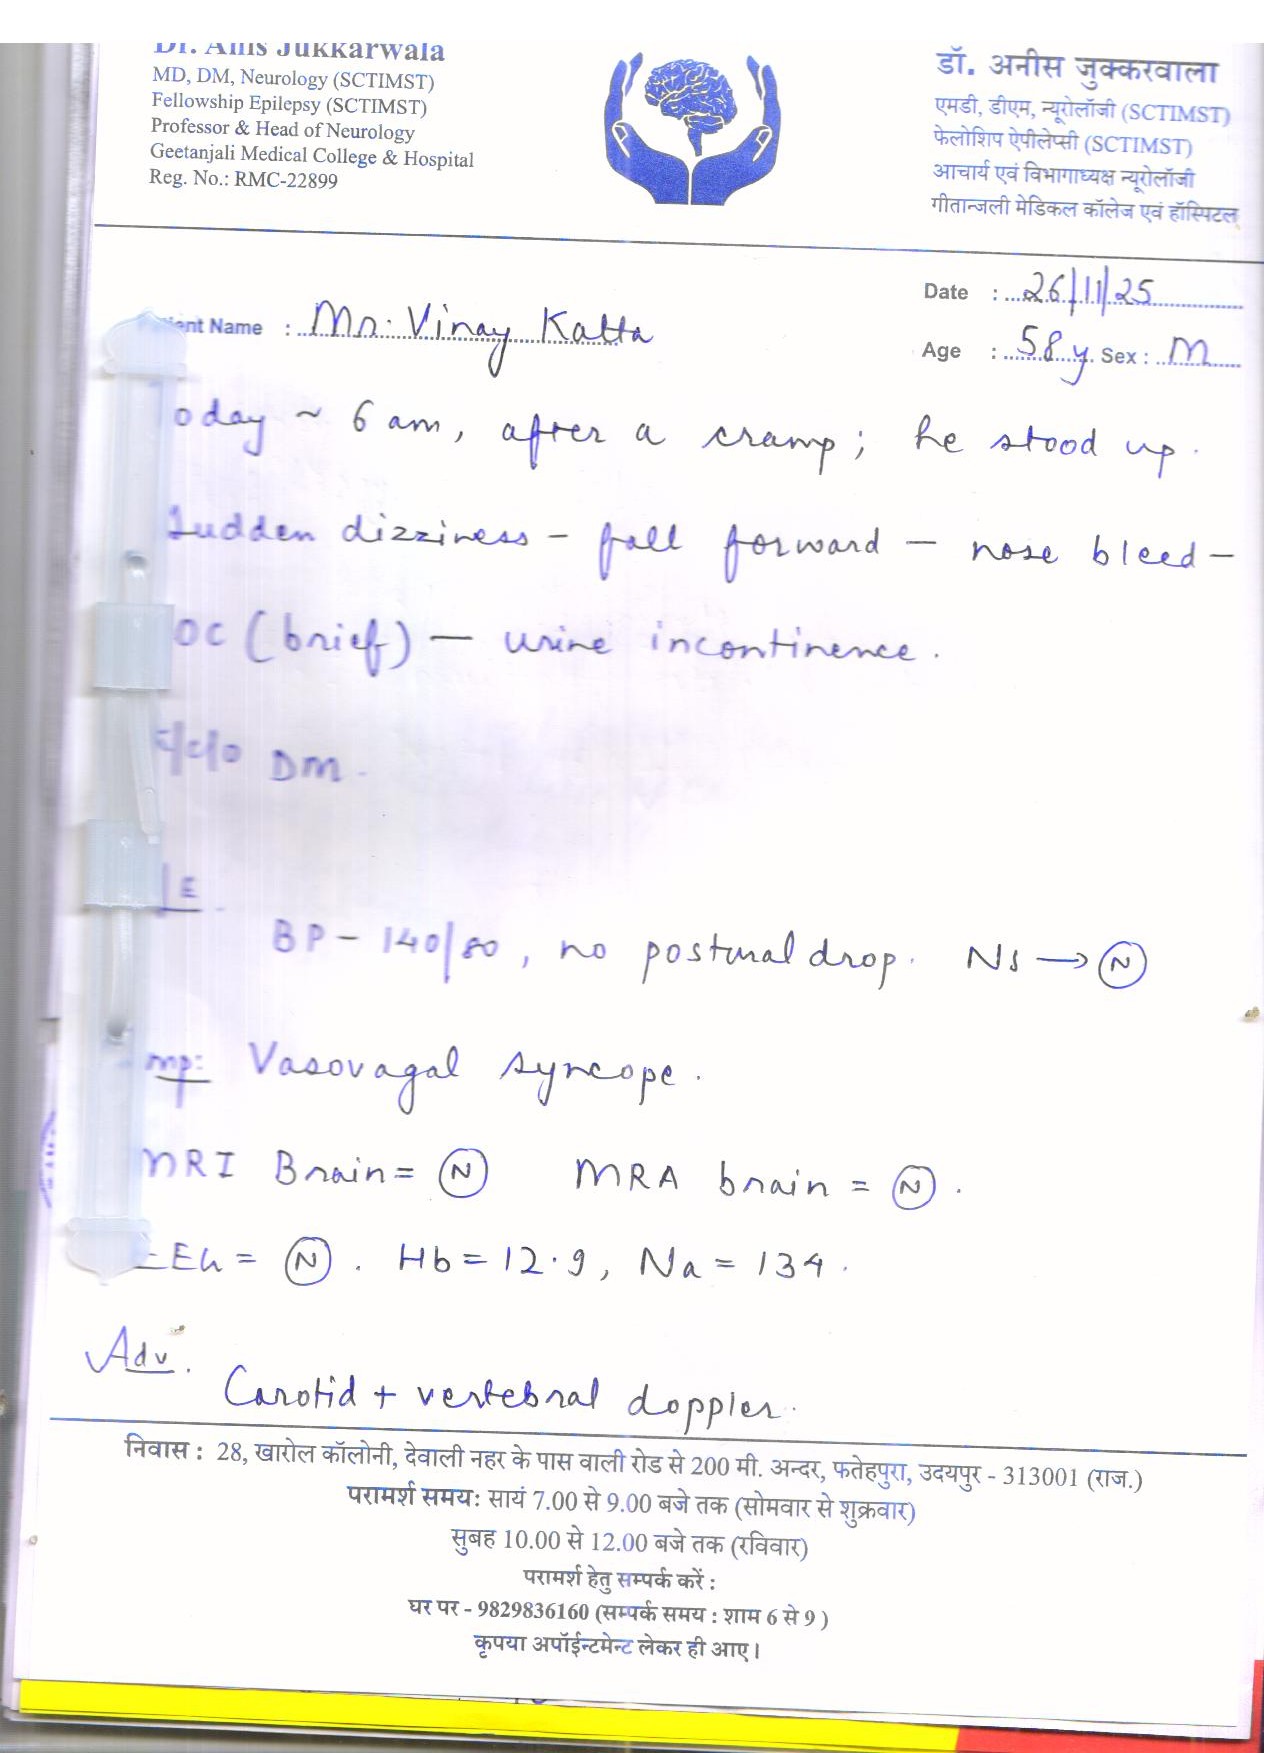 Dr. Anis Jukkarwala
MD, DM, Neurology (SCTIMST)
Fellowship Epilepsy (SCTIMST)
Professor & Head of Neurology
Geetanjali Medical College & Hospital
Reg. No.: RMC-22899
डॉ. अनीस जुक्करवाला
एमडी, डीएम, न्यूरोलॉजी (SCTIMST)
फेलोशिप ऐपीलेप्सी (SCTIMST)
आचार्य एवं विभागाध्यक्ष न्यूरोलॉजी
गीतान्जली मेडिकल कॉलेज एवं हॉस्पिटल
Date : 26/11/25
ent Name : Mr. Vinay Katta
Age : 58 y Sex : M
oday ~ 6 am, after a cramp; he stood up.
Sudden dizziness - fall forward - nose bleed -
OC (brief) - urine incontinence.
DM.
E
BP - 140/80, no postural drop. NS → N
mp: Vasovagal syncope.
MRI Brain = N MRA brain = N.
EEG = N. Hb = 12.9, Na = 134.
Adv.
Carotid + vertebral doppler.
निवास : 28, खारोल कॉलोनी, देवाली नहर के पास वाली रोड से 200 मी. अन्दर, फतेहपुरा, उदयपुर - 313001 (राज.)
परामर्श समय: सायं 7.00 से 9.00 बजे तक (सोमवार से शुक्रवार)
सुबह 10.00 से 12.00 बजे तक (रविवार)
परामर्श हेतु सम्पर्क करें :
घर पर - 9829836160 (सम्पर्क समय : शाम 6 से 9 )
कृपया अपॉईन्टमेन्ट लेकर ही आए।